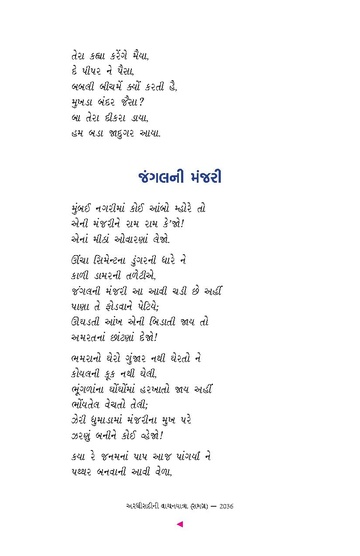 તેરા ક્હા કરેંગે મૈયા,
દે પીપર ને પૈસા,
બબલી બીચમેં ક્યોં કરતી હૈ,
મુખડા બંદર જૈસા?
બા તેરા દીકરા ડાયા,
હમ બડા જાદુગર આયા.
જંગલની મંજરી
મુંબઈ નગરીમાં કોઈ આંબો મ્હોરે તો
એની મંજરીને રામ રામ કે'જો!
એનાં મીઠાં ઓવારણાં લેજો.
ઊંચા સિમેન્ટના ડુંગરની ધારે ને
કાળી ડામરની તળેટીએ,
જંગલની મંજરી આ આવી ચડી છે અહીં
પાણા તે ફોડવાને પેટિયે;
ઊઘડતી આંખ એની બિડાતી જાય તો
અમરતનાં છાંટણાં દેજો!
ભમરાનો ઘેરો ગુંજાર નથી ઘેરતો ને
કોયલની કૂક નથી ઘેલી,
ભૂંગળાંના ઘોંઘોંમાં હરખાતો જાય અહીં
ભોંયતેલ વેચતો તેલી;
ઝેરી ધુમાડામાં મંજરીના મુખ પરે
ઝરણું બનીને કોઈ વ્હેજો!
કયા રે જનમનાં પાપ આજ પાંગર્યાં ને
પથ્થર બનવાની આવી વેળા,
અરધીસદીની વાચનયાત્રા (સમગ્ર) — 2036